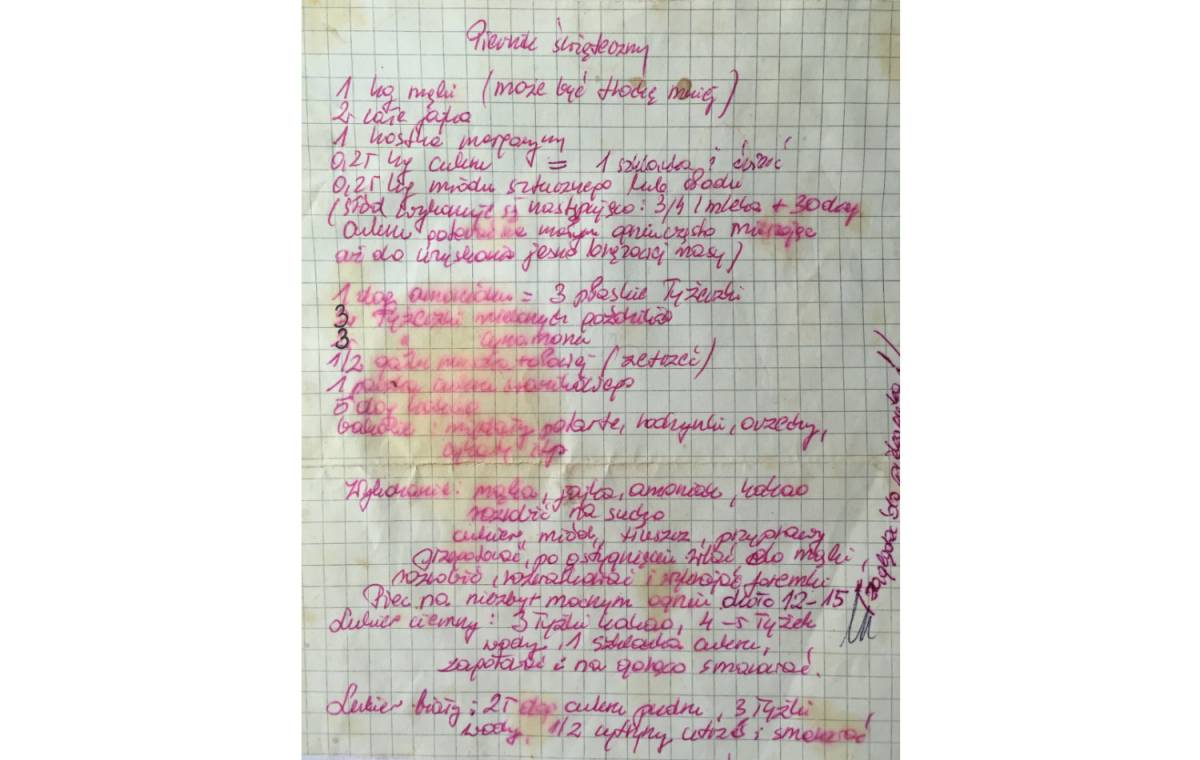 Piernik świąteczny
1 kg mąki (może być trochę mniej)
2 całe jajka
1 kostka margaryny
0,25 kg cukru = 1 szklanka i ćwierć
0,25 kg miodu sztucznego lub słodu
(słód wykonuje się następująco: 3/4 l mleka + 30 dag
cukru gotować na małym ogniu często mieszając
aż do uzyskania jasno brązowej masy)
1 dag amoniaku = 3 płaskie łyżeczki
3 łyżeczki mielonych goździków
3 " cynamonu
1/2 gałki muszkatołowej (zetrzeć)
1 paczka cukru waniliowego
5 dag kakao
bakalie: migdały, rodzynki, orzechy,
Wykonanie: mąka, jajka, amoniak, kakao
na sucho
cukier, miód, tłuszcz, przyprawy
zagotować, po ostygnięciu zlać do mąki,
rozrobić, rozwałkować i wykrajać foremki
Piec na niezbyt mocnym ogniu około 12-15'
Lukier ciemny: 3 łyżki kakao, 4-5 łyżek
wody, 1 szklanka cukru,
zagotować i na gorąco smarować.
Lukier biały: 25 dag cukru pudru, 3 łyżki
wody, 1/2 cytryny utrzeć i smarować